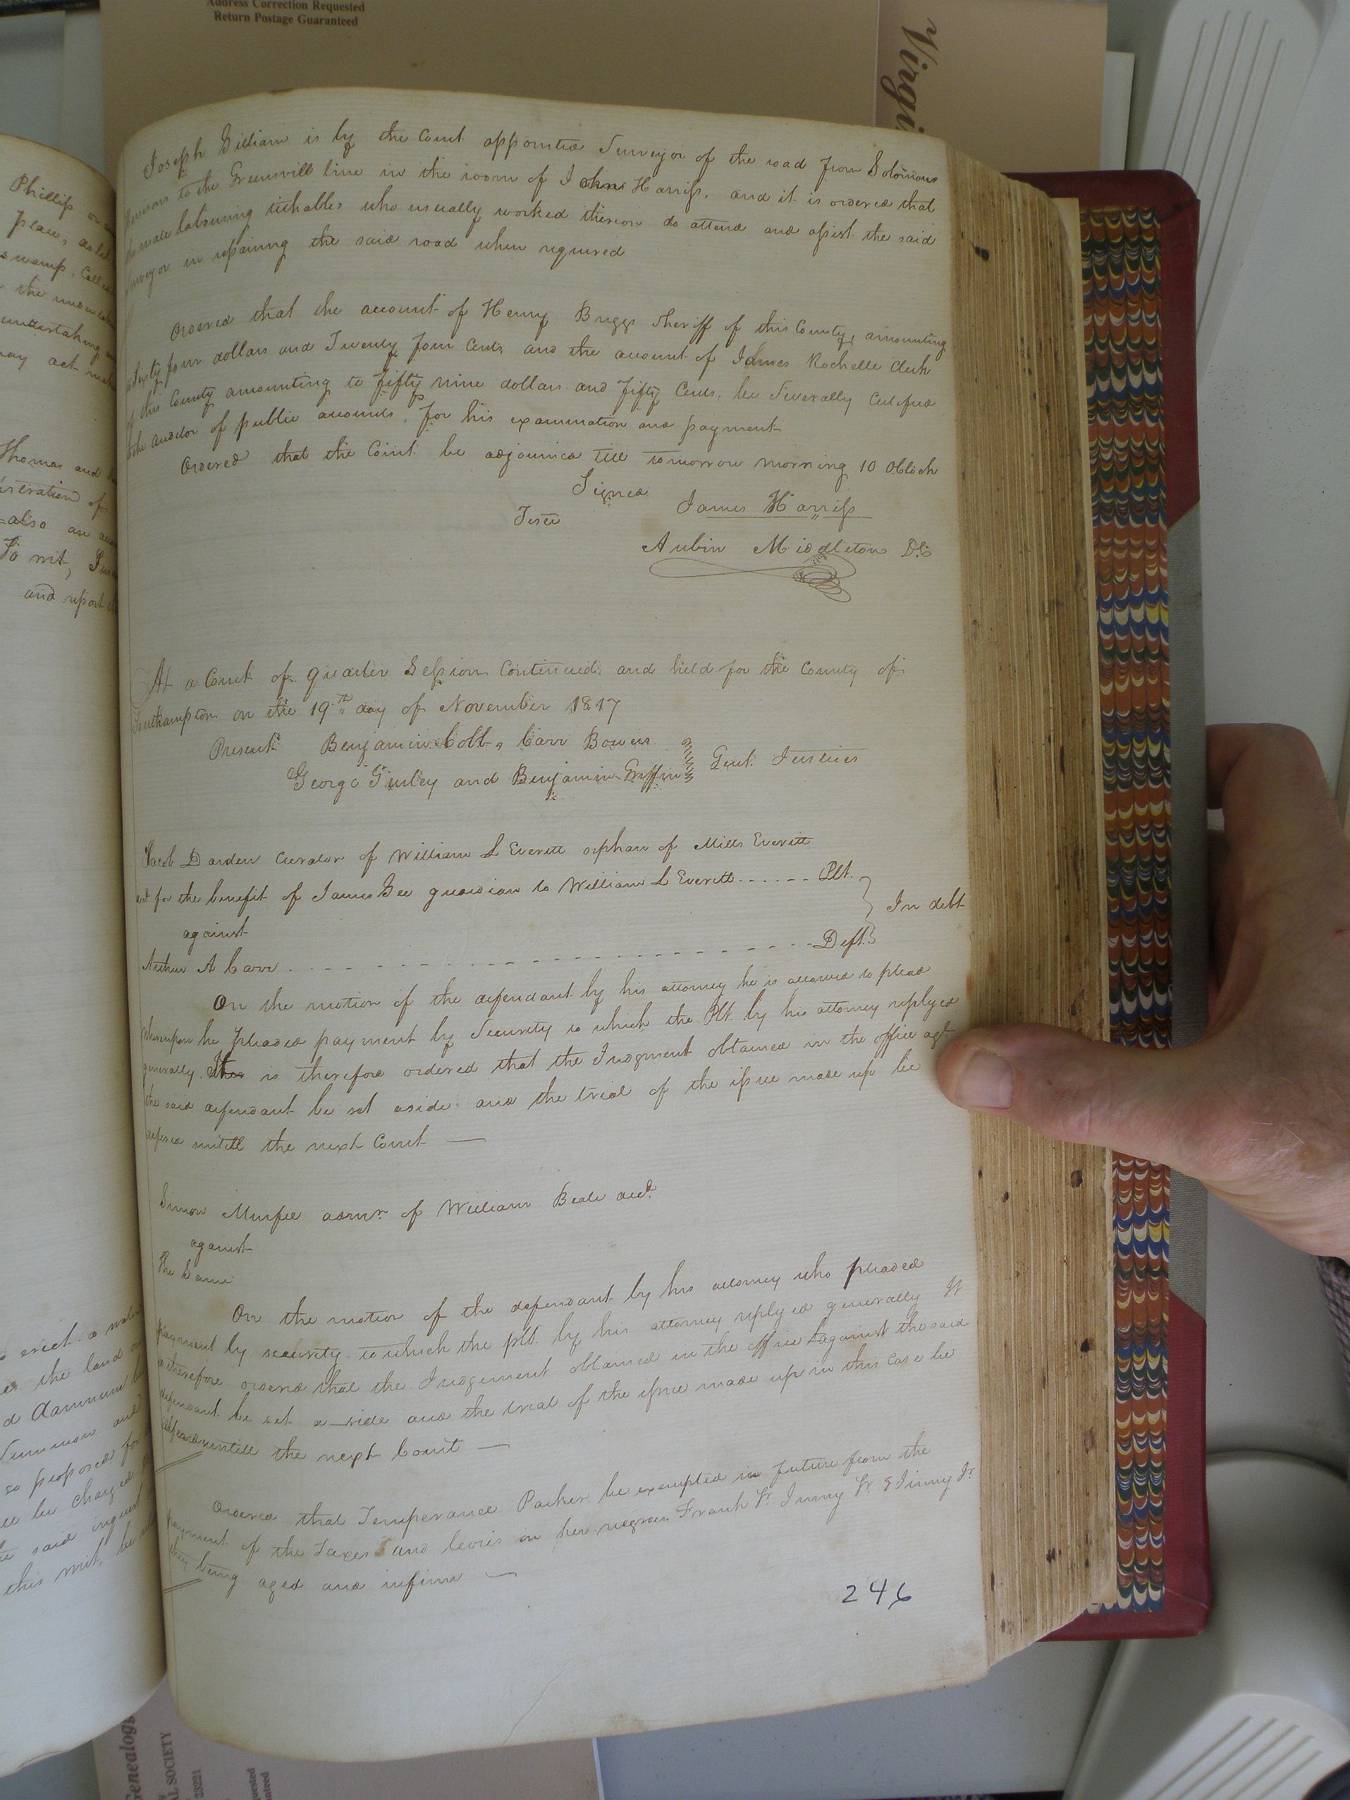 Address Correction Requested
Return Postage Guaranteed
Virgi
Joseph Gilliam is by the Court appointed Surveyor of the road from Solomons
to the Greensvill line in the room of John Harriss, and it is ordered that
the male labouring tithables who usually worked thereon do attend and assist the said
Surveyor in repairing the said road when required
Ordered that the account of Henry Briggs Sheriff of this County, amounting
four dollars and Twenty four Cents, and the account of James Rochelle Clerk
of this County amounting to fifty nine dollars and fifty Cents, be Severally Certified
to the auditor of public accounts for his examination and payment
Ordered that the Court be adjourned till tomorrow morning 10 OClock
Signed
James Harriss
Teste
Aubin Middleton DC
At a Court of quarter Session Continued and held for the County of
Southampton on the 19th day of November 1817
Present Benjamin Cobb, Carr Bowers
George Gurley and Benjamin Griffin Gent. Justices
Jacob Darden Curator of William L Everitt orphan of Mills Everitt
for the benefit of James Gee guardian to William L Everitt ...... Plt.
In debt
against
Arthur A Carr . - - - - - - - - - - - - Deft.
On the motion of the defendant by his attorney he is allowed to plead
whereupon he pleaded payment by Security to which the Plt. by his attorney replyed
generally. It is therefore ordered that the Judgment obtained in the office agt.
the said defendant be set aside and the trial of the issue made up be
defered untill the next Court —
Simon Murfee admr. of William Beale decd.
against
The Same
On the motion of the defendant by his attorney who pleaded
payment by security to which the plt. by his attorney replyed generally It
is therefore ordered that the Judgement obtained in the office against the said
defendant be set a_side and the trial of the issue made up in this Case be
defered untill the next Court —
Ordered that Temperance Parker be exempted in future from the
payment of the Taxes and levies on her negroes Frank Sr. Jinny Sr. & Jinny Jr.
they being aged and infirm —
246
Phillip
place,
swamp, called
the
undertaking
may act
Thomas and
also an
To wit,
and report
erect a
the land
d damnum
Summon and
so proposed for
be charged
said inquest
this writ,
Genealog
SOCIETY
23221